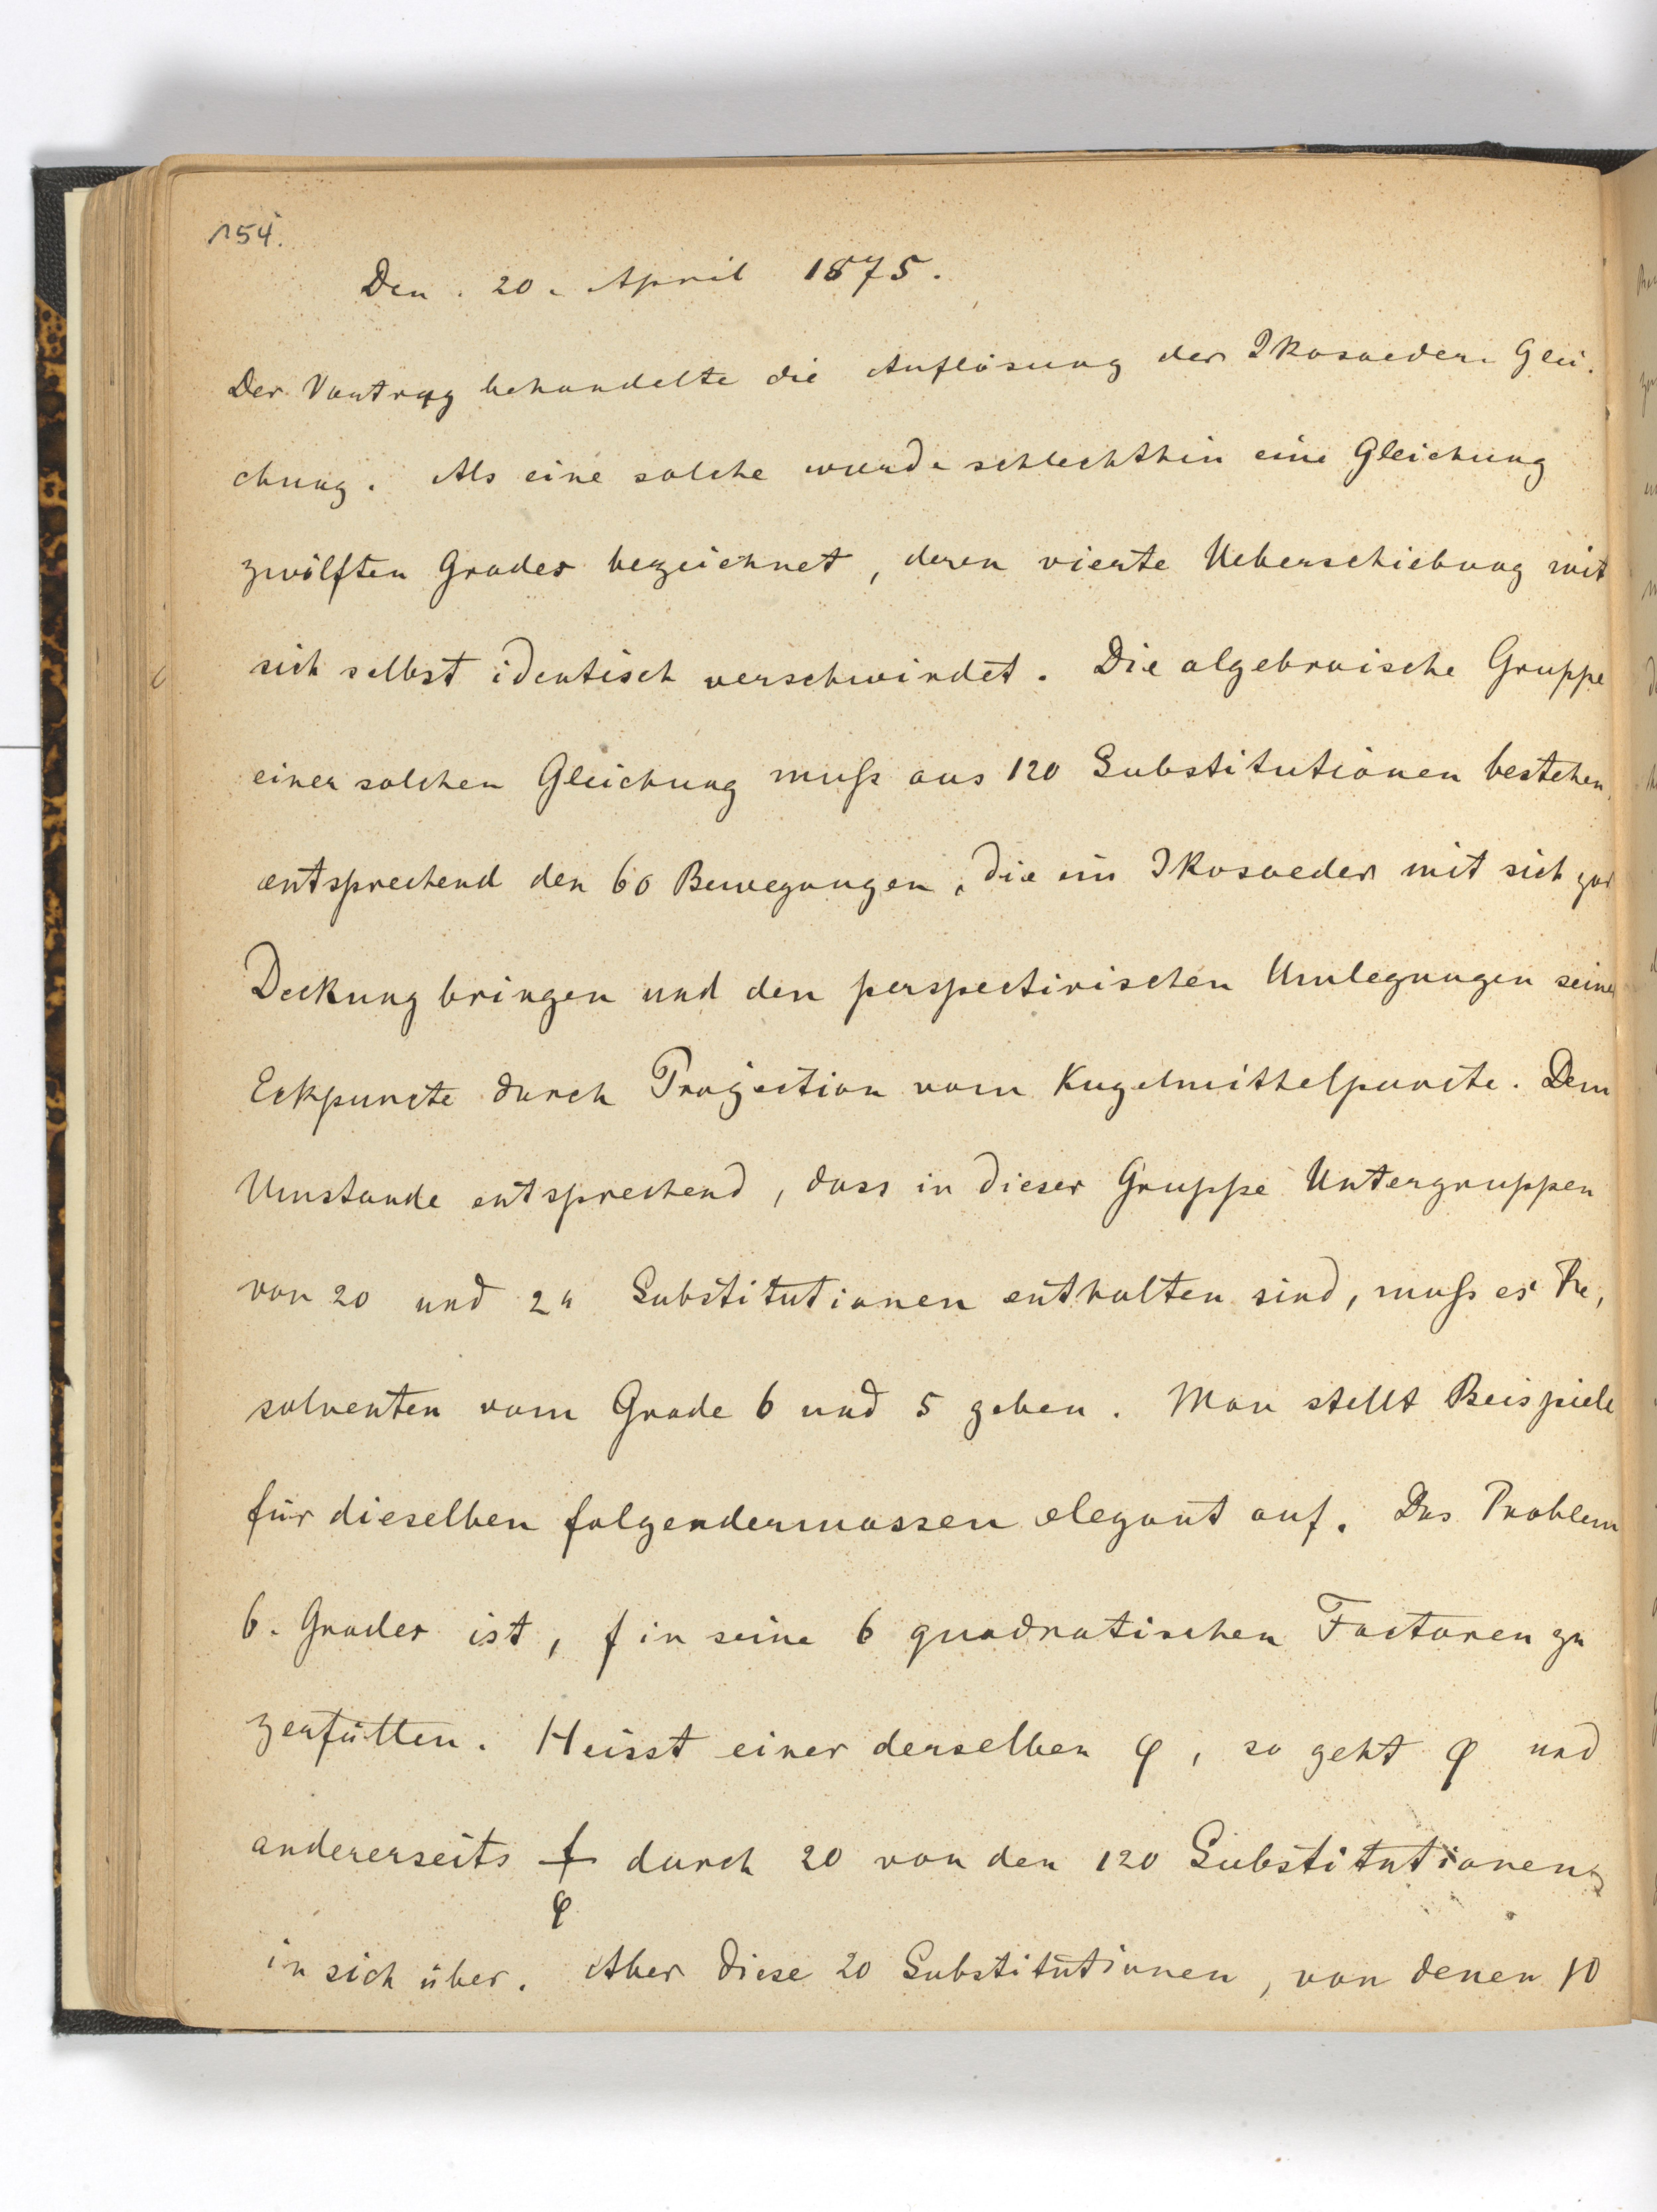 154.
Den. 20. April 1875.
Der Vortrag behandelte die Auflösung der Ikosaeder-Glei-
chung. Als eine solche wurde schlechthin eine Gleichung
zwölften Grades bezeichnet, deren vierte Ueberschiebung mit
sich selbst identisch verschwindet. Die algebraische Gruppe
einer solchen Gleichung muss aus 120 Substitutionen bestehen,
entsprechend den 60 Bewegungen, die ein Ikosaeder mit sich zur
Deckung bringen und den perspectivischen Umlegungen seiner
Eckpuncte durch Projection vom Kugelmittelpuncte. Dem
Umstande entsprechend, dass in dieser Gruppe Untergruppen
von 20 und 24 Substitutionen enthalten sind, muss es Re-
solventen vom Grade 6 und 5 geben. Man stellt Beispiele
für dieselben folgendermassen elegant auf. Das Problem
6. Grades ist, f in seine 6 quadratischen Factoren zu
zerfällen. Heisst einer derselben φ, so geht φ und
andererseits f/φ durch 20 von den 120 Substitutionen
in sich über. Aber diese 20 Substitutionen, von denen 10